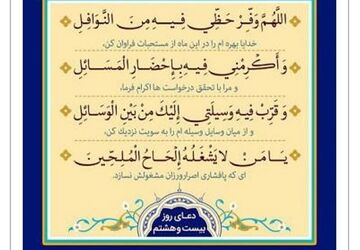 اللّهُمَّ وَفِّرْ حَظِّي فِيهِ مِنَ النَّوَافِلِ
خدایا بهره ام را در این ماه از مستحبات فراوان کن،
وَأَكْرِمْنِي فِيهِ بِإِحْضَارِ الْمَسَائِلِ
و مرا با تحقق درخواست ها اکرام فرما،
وَقَرِّبْ فِيهِ وَسِيلَتِي إِلَيْكَ مِنْ بَيْنِ الْوَسَائِلِ
و از میان وسایل وسیله ام را به سویت نزدیك کن،
يَا مَنْ لَا يَشْغَلُهُ إِلْحَاحُ الْمُلِحِّينَ
ای که پافشاری اصرارورزان مشغولش نسازد.
دعای روز
بیست و هشتم